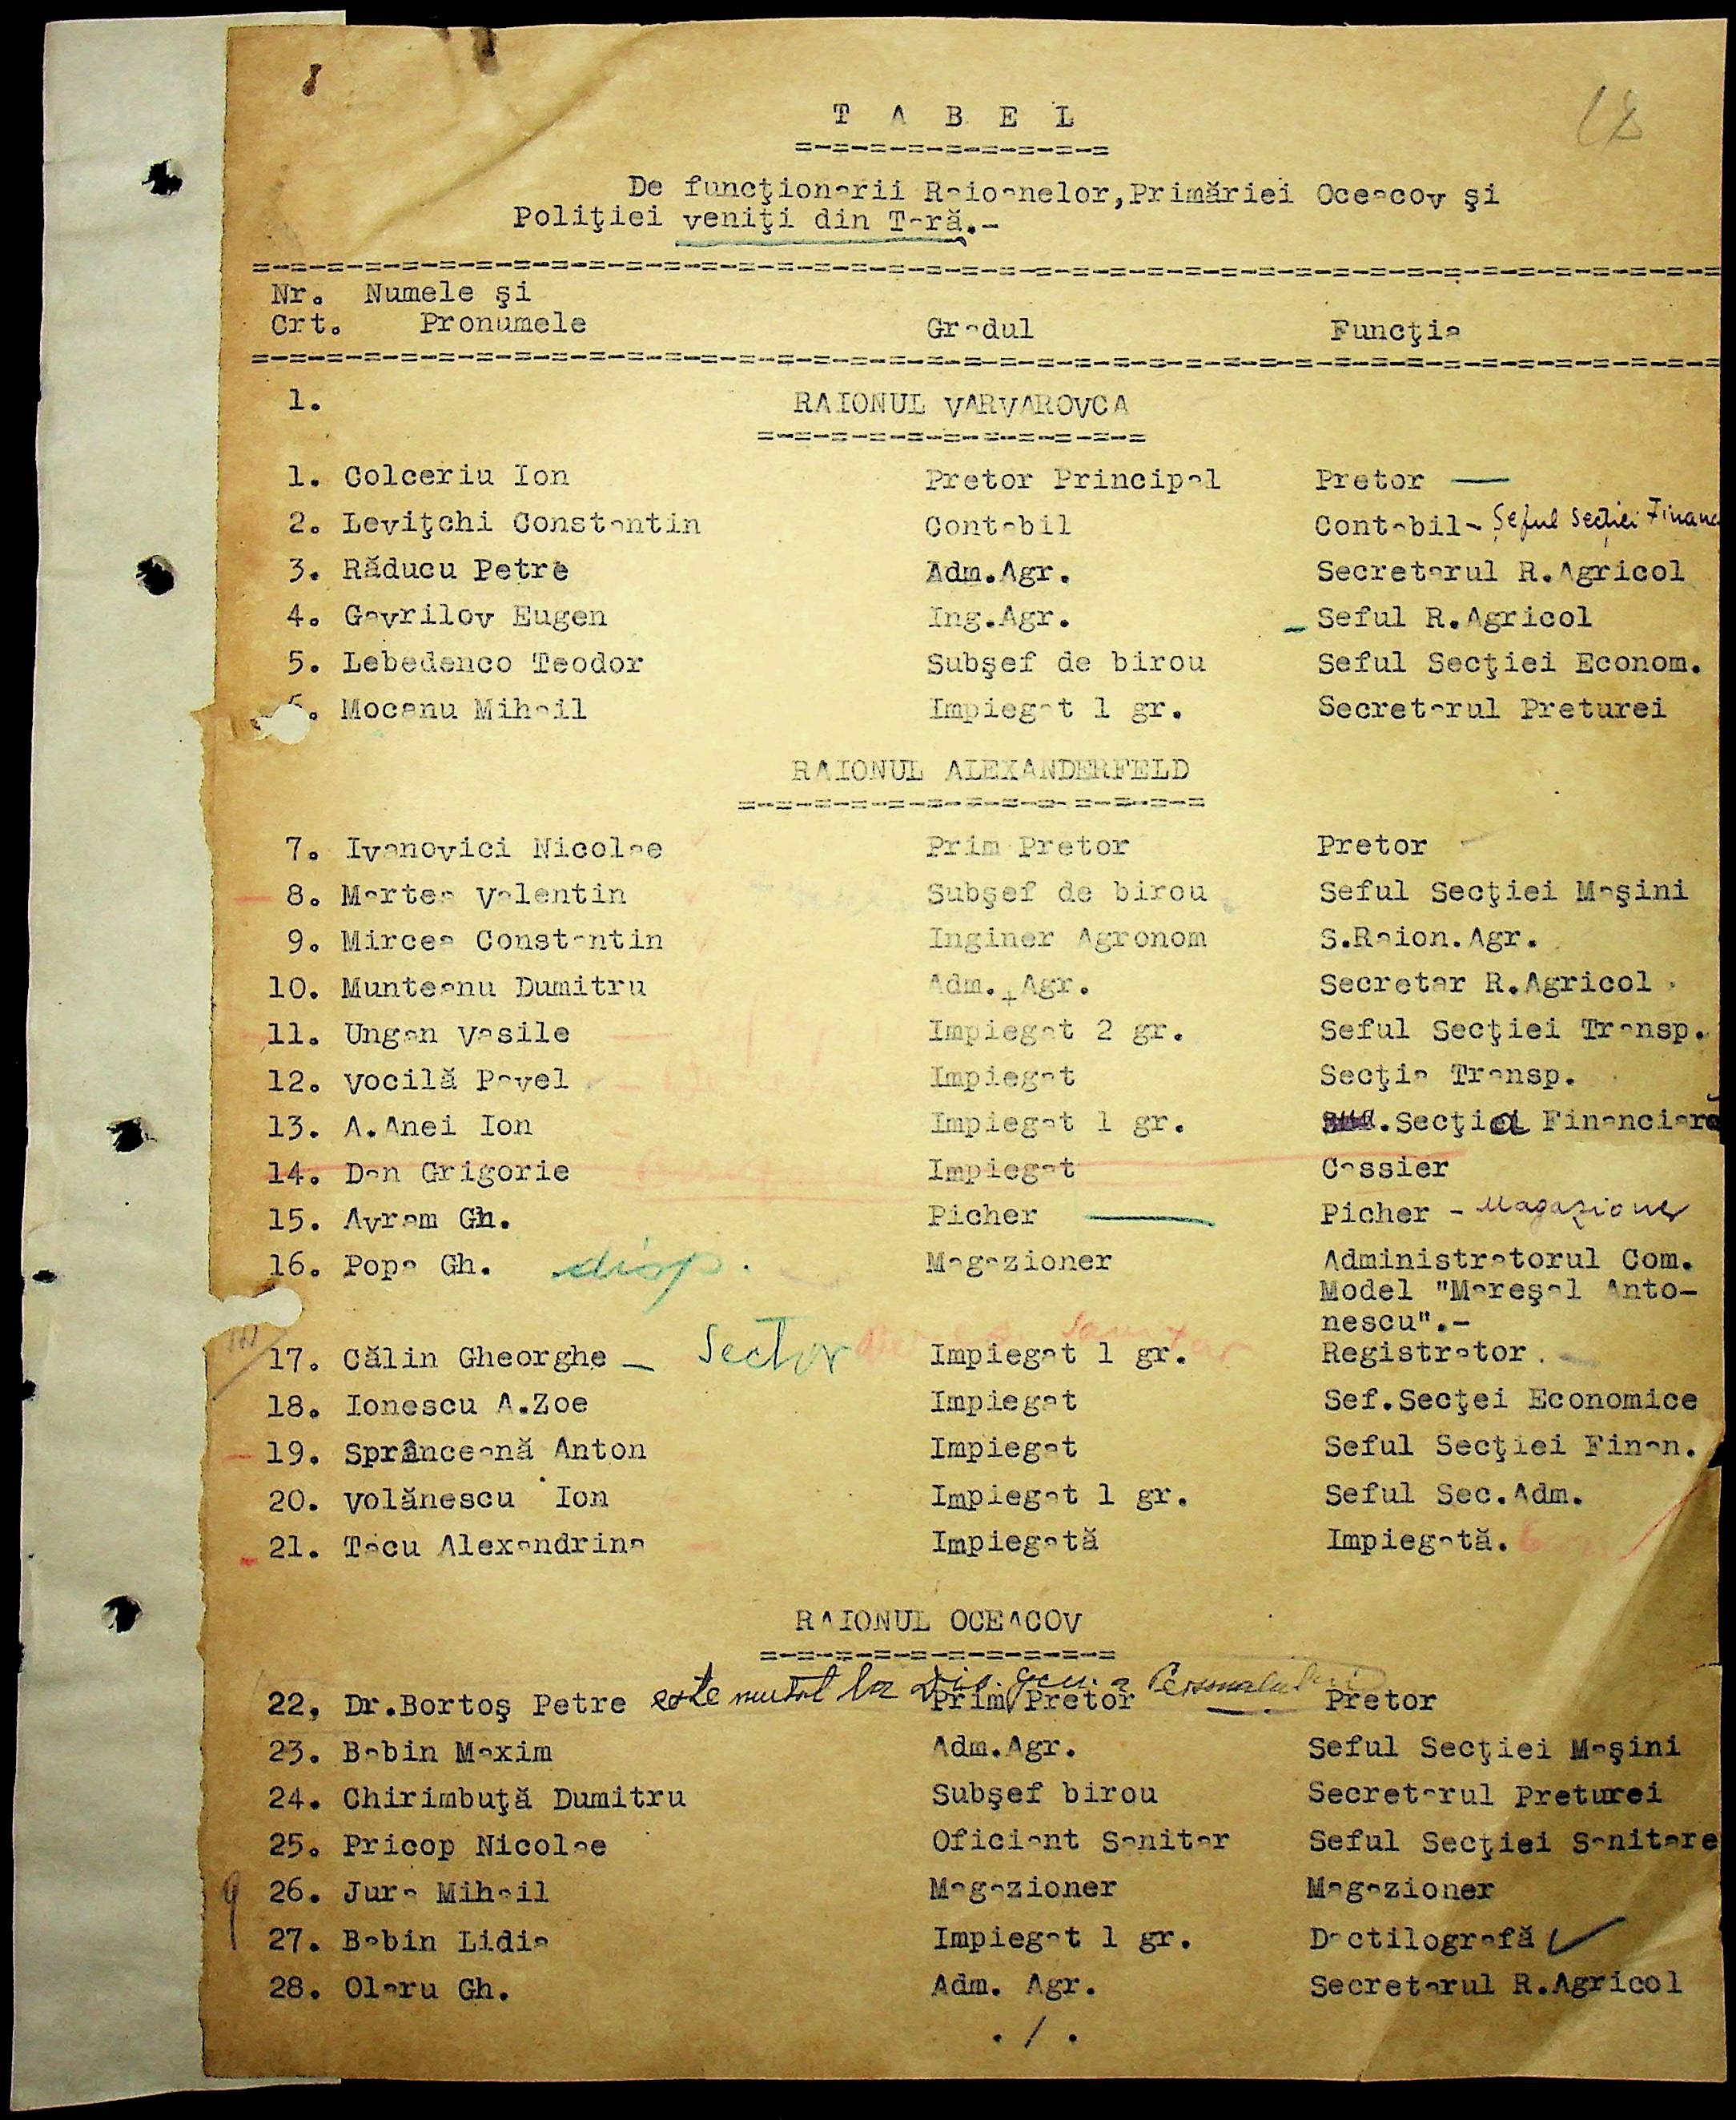 18
T A B E L
De funcţionarii Raioanelor,Primăriei Oceacov şi
Poliţiei veniţi din Tară.-
Nr. Numele şi
Crt. Pronumele Gradul Funcţia
1. RAIONUL VARVAROVCA
1. Colceriu Ion Pretor Principal Pretor —
2. Leviţchi Constantin Contabil Contabil - Şeful Secţiei Financ
3. Răducu Petre Adm.Agr. Secretarul R.Agricol
4. Gavrilov Eugen Ing.Agr. Seful R.Agricol
5. Lebedenco Teodor Subşef de birou Seful Secţiei Econom.
6. Mocanu Mihail Impiegat 1 gr. Secretarul Preturei
RAIONUL ALEXANDERFELD
7. Ivanovici Nicolae Prim Pretor Pretor
8. Martea Valentin Subşef de birou Seful Secţiei Maşini
9. Mircea Constantin Inginer Agronom S.Raion.Agr.
10. Munteanu Dumitru Adm. Agr. Secretar R.Agricol
11. Ungan Vasile Impiegat 2 gr. Seful Secţiei Transp.
12. Vocilă Pavel Impiegat Secţia Transp.
13. A.Anei Ion Impiegat 1 gr. Secţia Financiară
14. Dan Grigorie Impiegat Cassier
15. Avram Gh. Picher Picher - Magazioner
16. Popa Gh. disp. Magazioner Administratorul Com.
Model "Mareşal Anto-
nescu".-
17. Călin Gheorghe - Sector Sanitar Impiegat 1 gr. Registrator.
18. Ionescu A.Zoe Impiegat Sef.Secţei Economice
19. Sprânceană Anton Impiegat Seful Secţiei Finan.
20. Volănescu Ion Impiegat 1 gr. Seful Sec.Adm.
21. Tacu Alexandrina Impiegată Impiegată.
RAIONUL OCEACOV
22, Dr.Bortoş Petre este mutat la Personalului Prim Pretor Pretor
23. Babin Maxim Adm.Agr. Seful Secţiei Maşini
24. Chirimbuţă Dumitru Subşef birou Secretarul Preturei
25. Pricop Nicolae Oficiant Sanitar Seful Secţiei Sanitare
26. Jura Mihail Magazioner Magazioner
27. Babin Lidia Impiegat 1 gr. Dactilografă
28. Olaru Gh. Adm. Agr. Secretarul R.Agricol
./.